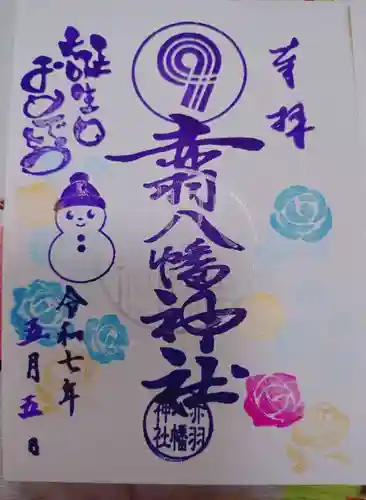 奉拝
赤羽八幡神社
赤羽
八幡
神社
誕生日
おめでとう
令和七年
五月五日